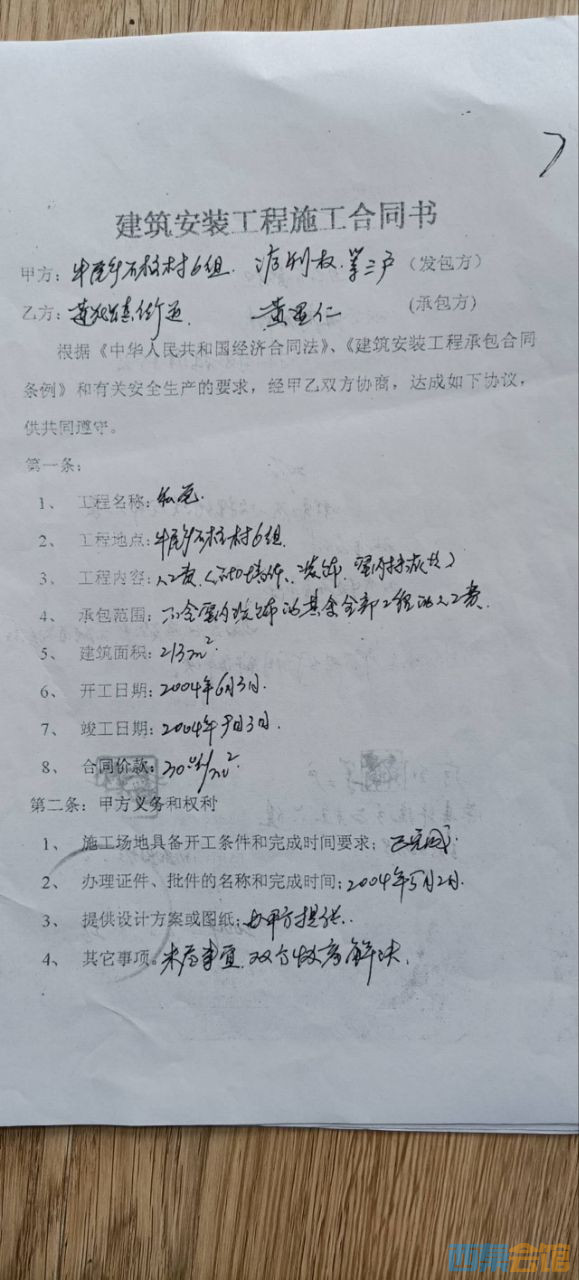 建筑安装工程施工合同书
甲方：牛尾乡石柱村6组 第三户（发包方）
乙方： 黄 仁 （承包方）
根据《中华人民共和国经济合同法》、《建筑安装工程承包合同
条例》和有关安全生产的要求，经甲乙双方协商，达成如下协议，
供共同遵守。
第一条：
1、 工程名称：
2、 工程地点：牛尾乡石柱村6组
3、 工程内容：人工费
4、 承包范围：不含室内装饰的其余全部工程的人工费.
5、 建筑面积：213m².
6、 开工日期：2004年6月3日.
7、 竣工日期：2004年9月3日.
8、 合同价款： /m²
第二条：甲方义务和权利
1、 施工场地具备开工条件和完成时间要求：已完成.
2、 办理证件、批件的名称和完成时间：2004年5月2日.
3、 提供设计方案或图纸：由甲方提供.
4、 其它事项。未尽事宜，双方 解决.
西祠会馆